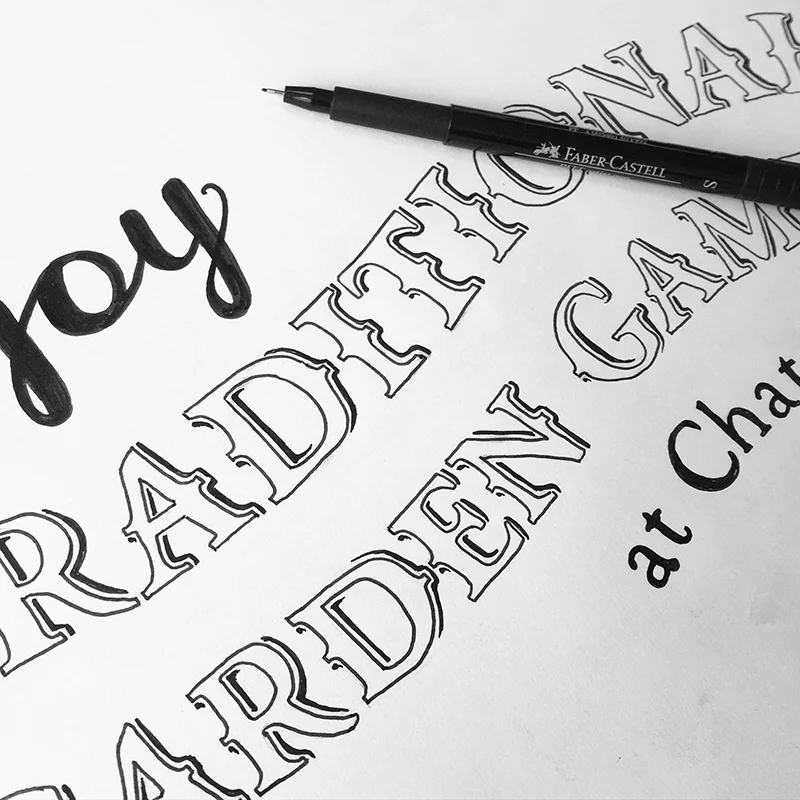 joy
RADITIONAL
ARDEN GAM
at Chat
FABER-CASTELL
S